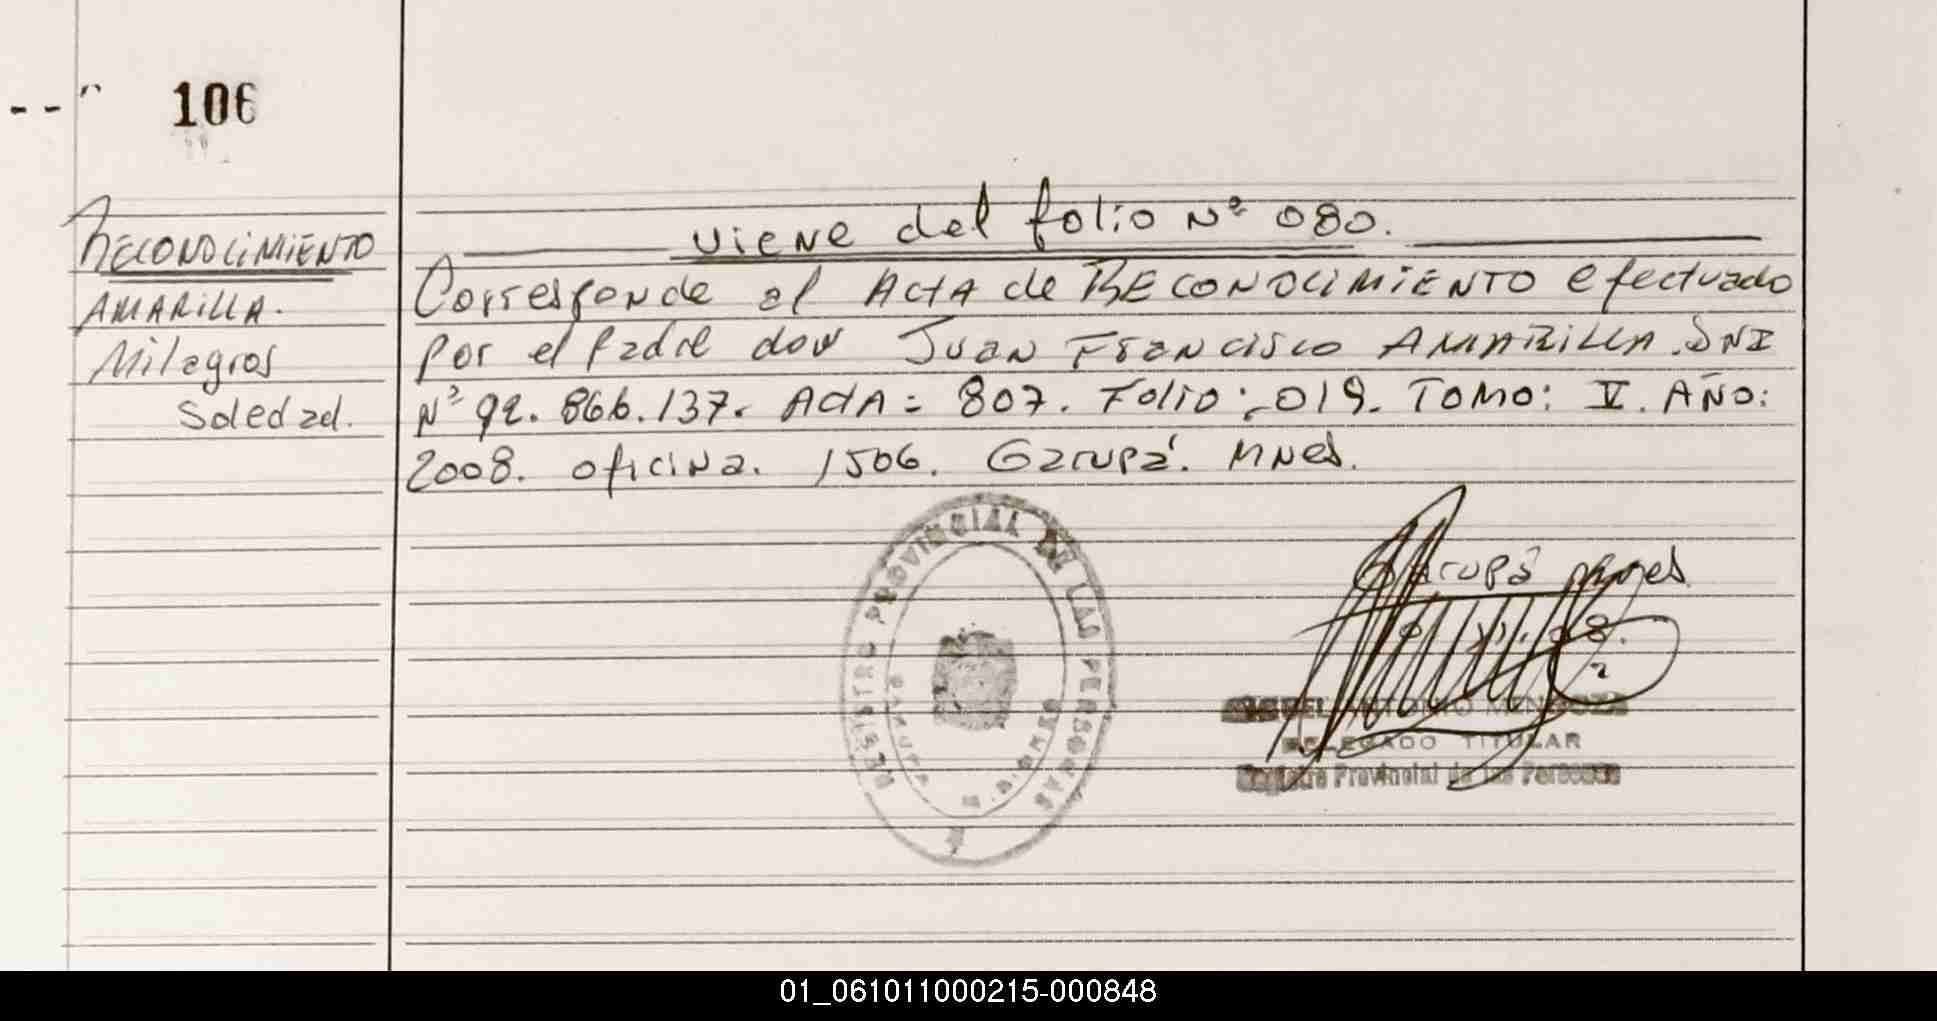 106
RECONOCIMIENTO
AMARILLA.
Milagros
Soledad.
viene del folio Nº 080.
Corresponde al ActA de RECONOCIMIENTO efectuado
por el padre don Juan Francisco AMARILLA. DNI
Nº 92. 866.137. ActA: 807. Folio: 019. TOMO: V. AÑO:
2008. oficina. 1506. Garupá. Mnes.
REGISTRO PROVINCIAL DE LAS PERSONAS
Garupá
ANTONIO MENDOZA
DELEGADO TITULAR
Registro Provincial de las Personas
01_061011000215-000848